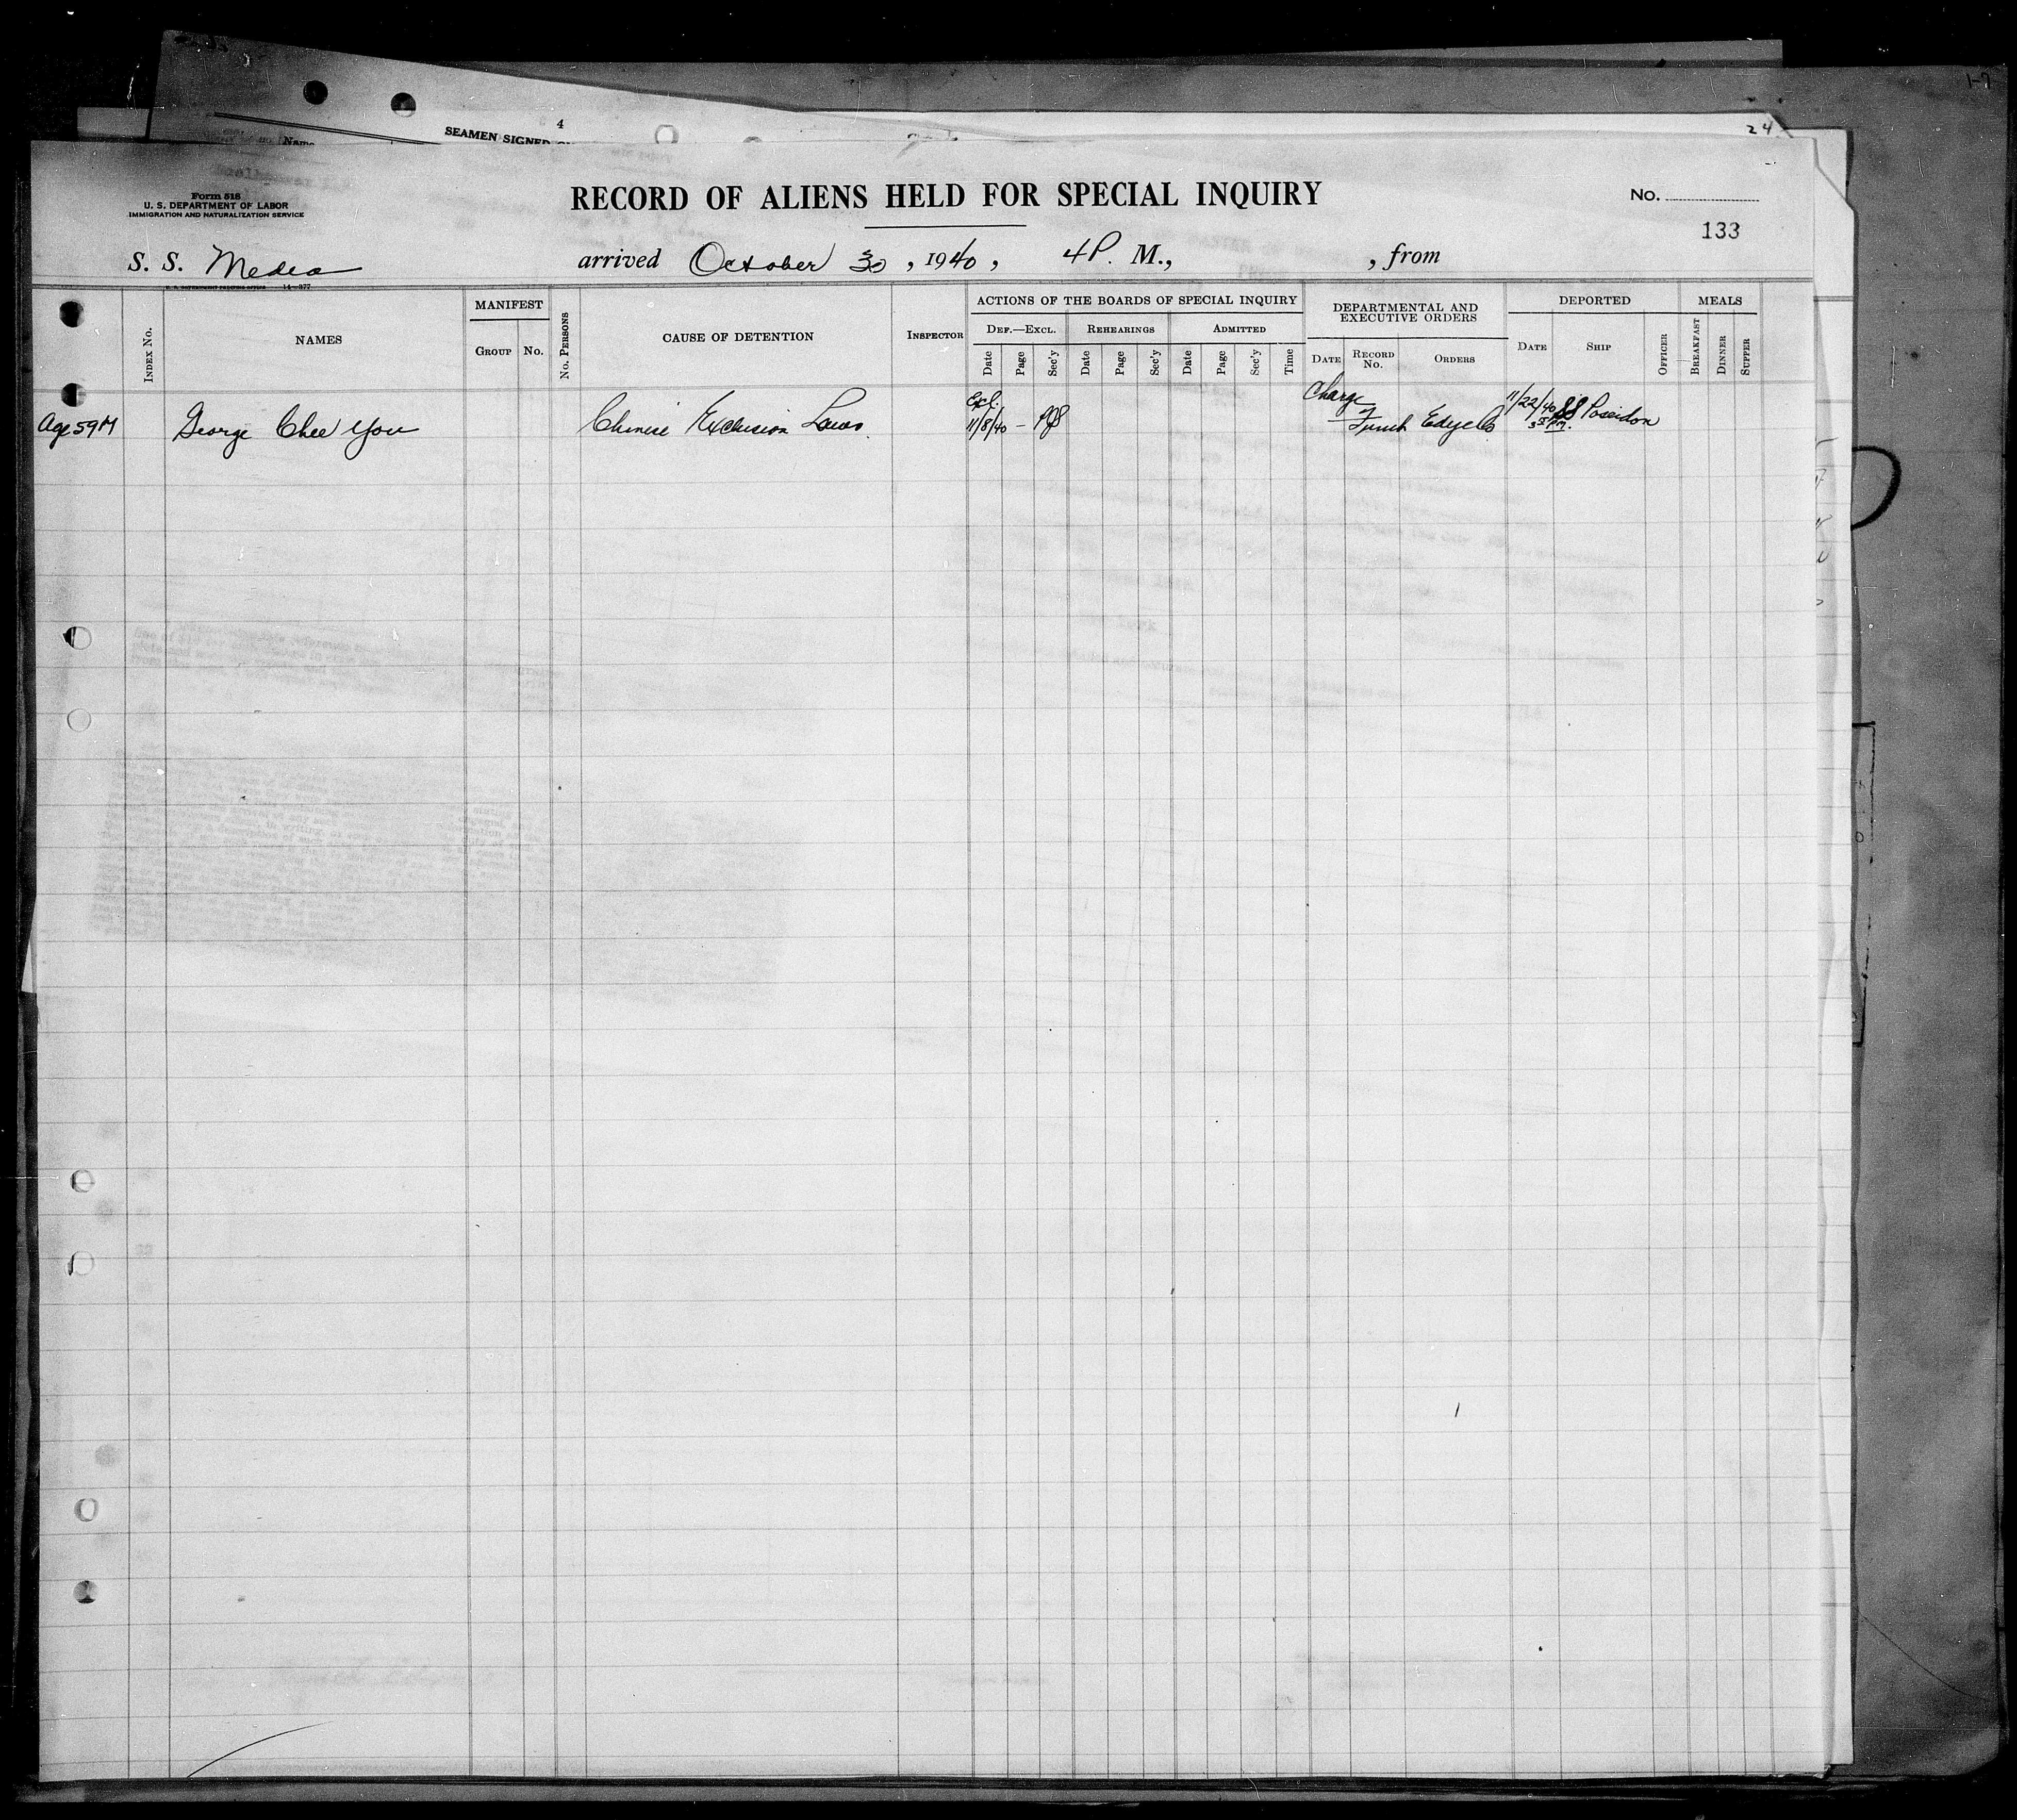 1-7
24
4
SEAMEN SIGNED
Name
Form 518
U. S. DEPARTMENT OF LABOR
IMMIGRATION AND NATURALIZATION SERVICE
RECORD OF ALIENS HELD FOR SPECIAL INQUIRY
No.
133
S. S. Medea arrived October 30, 1940, 4 P. M., , from
U. S. GOVERNMENT PRINTING OFFICE 14-377
INDEX No.
NAMES
MANIFEST
GROUP No.
No. PERSONS
CAUSE OF DETENTION
INSPECTOR
ACTIONS OF THE BOARDS OF SPECIAL INQUIRY
DEF.—EXCL. REHEARINGS ADMITTED
Date Page Sec'y Date Page Sec'y Date Page Sec'y Time
DEPARTMENTAL AND
EXECUTIVE ORDERS
DATE RECORD No. ORDERS
DEPORTED
DATE SHIP OFFICER
MEALS
BREAKFAST DINNER SUPPER
Age 59 M George Chee You Chinese Exclusion Laws. Excl. 11/8/40 — Charge of Funch Edye Co 11/22/40 SS Poseidon